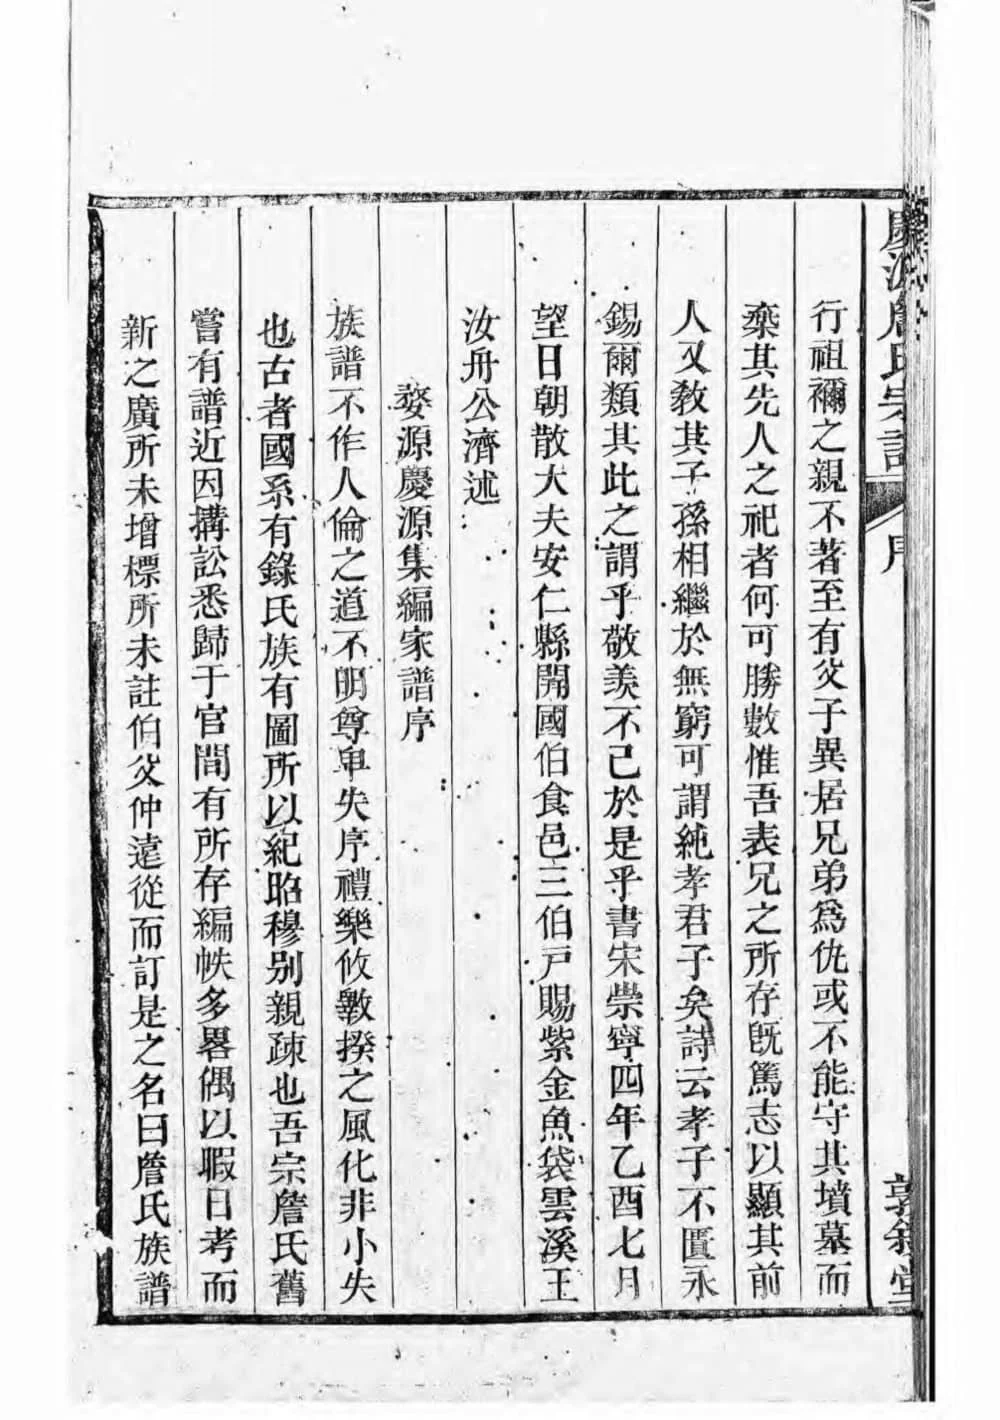 慶源詹氏宗譜 序 敦敘堂
行祖禰之親不著至有父子異居兄弟為仇或不能守其墳墓而
棄其先人之祀者何可勝數惟吾表兄之所存既篤志以顯其前
人又教其子孫相繼於無窮可謂純孝君子矣詩云孝子不匱永
錫爾類其此之謂乎敬羨不已於是乎書宋崇寧四年乙酉七月
望日朝散大夫安仁縣開國伯食邑三伯戶賜紫金魚袋雲溪王
汝舟公濟述
婺源慶源集編家譜序
族譜不作人倫之道不明尊卑失序禮樂攸斁揆之風化非小失
也古者國系有錄氏族有圖所以紀昭穆別親疎也吾宗詹氏舊
嘗有譜近因搆訟悉歸于官間有所存編帙多畧偶以暇日考而
新之廣所未增標所未註伯父仲遠從而訂是之名曰詹氏族譜